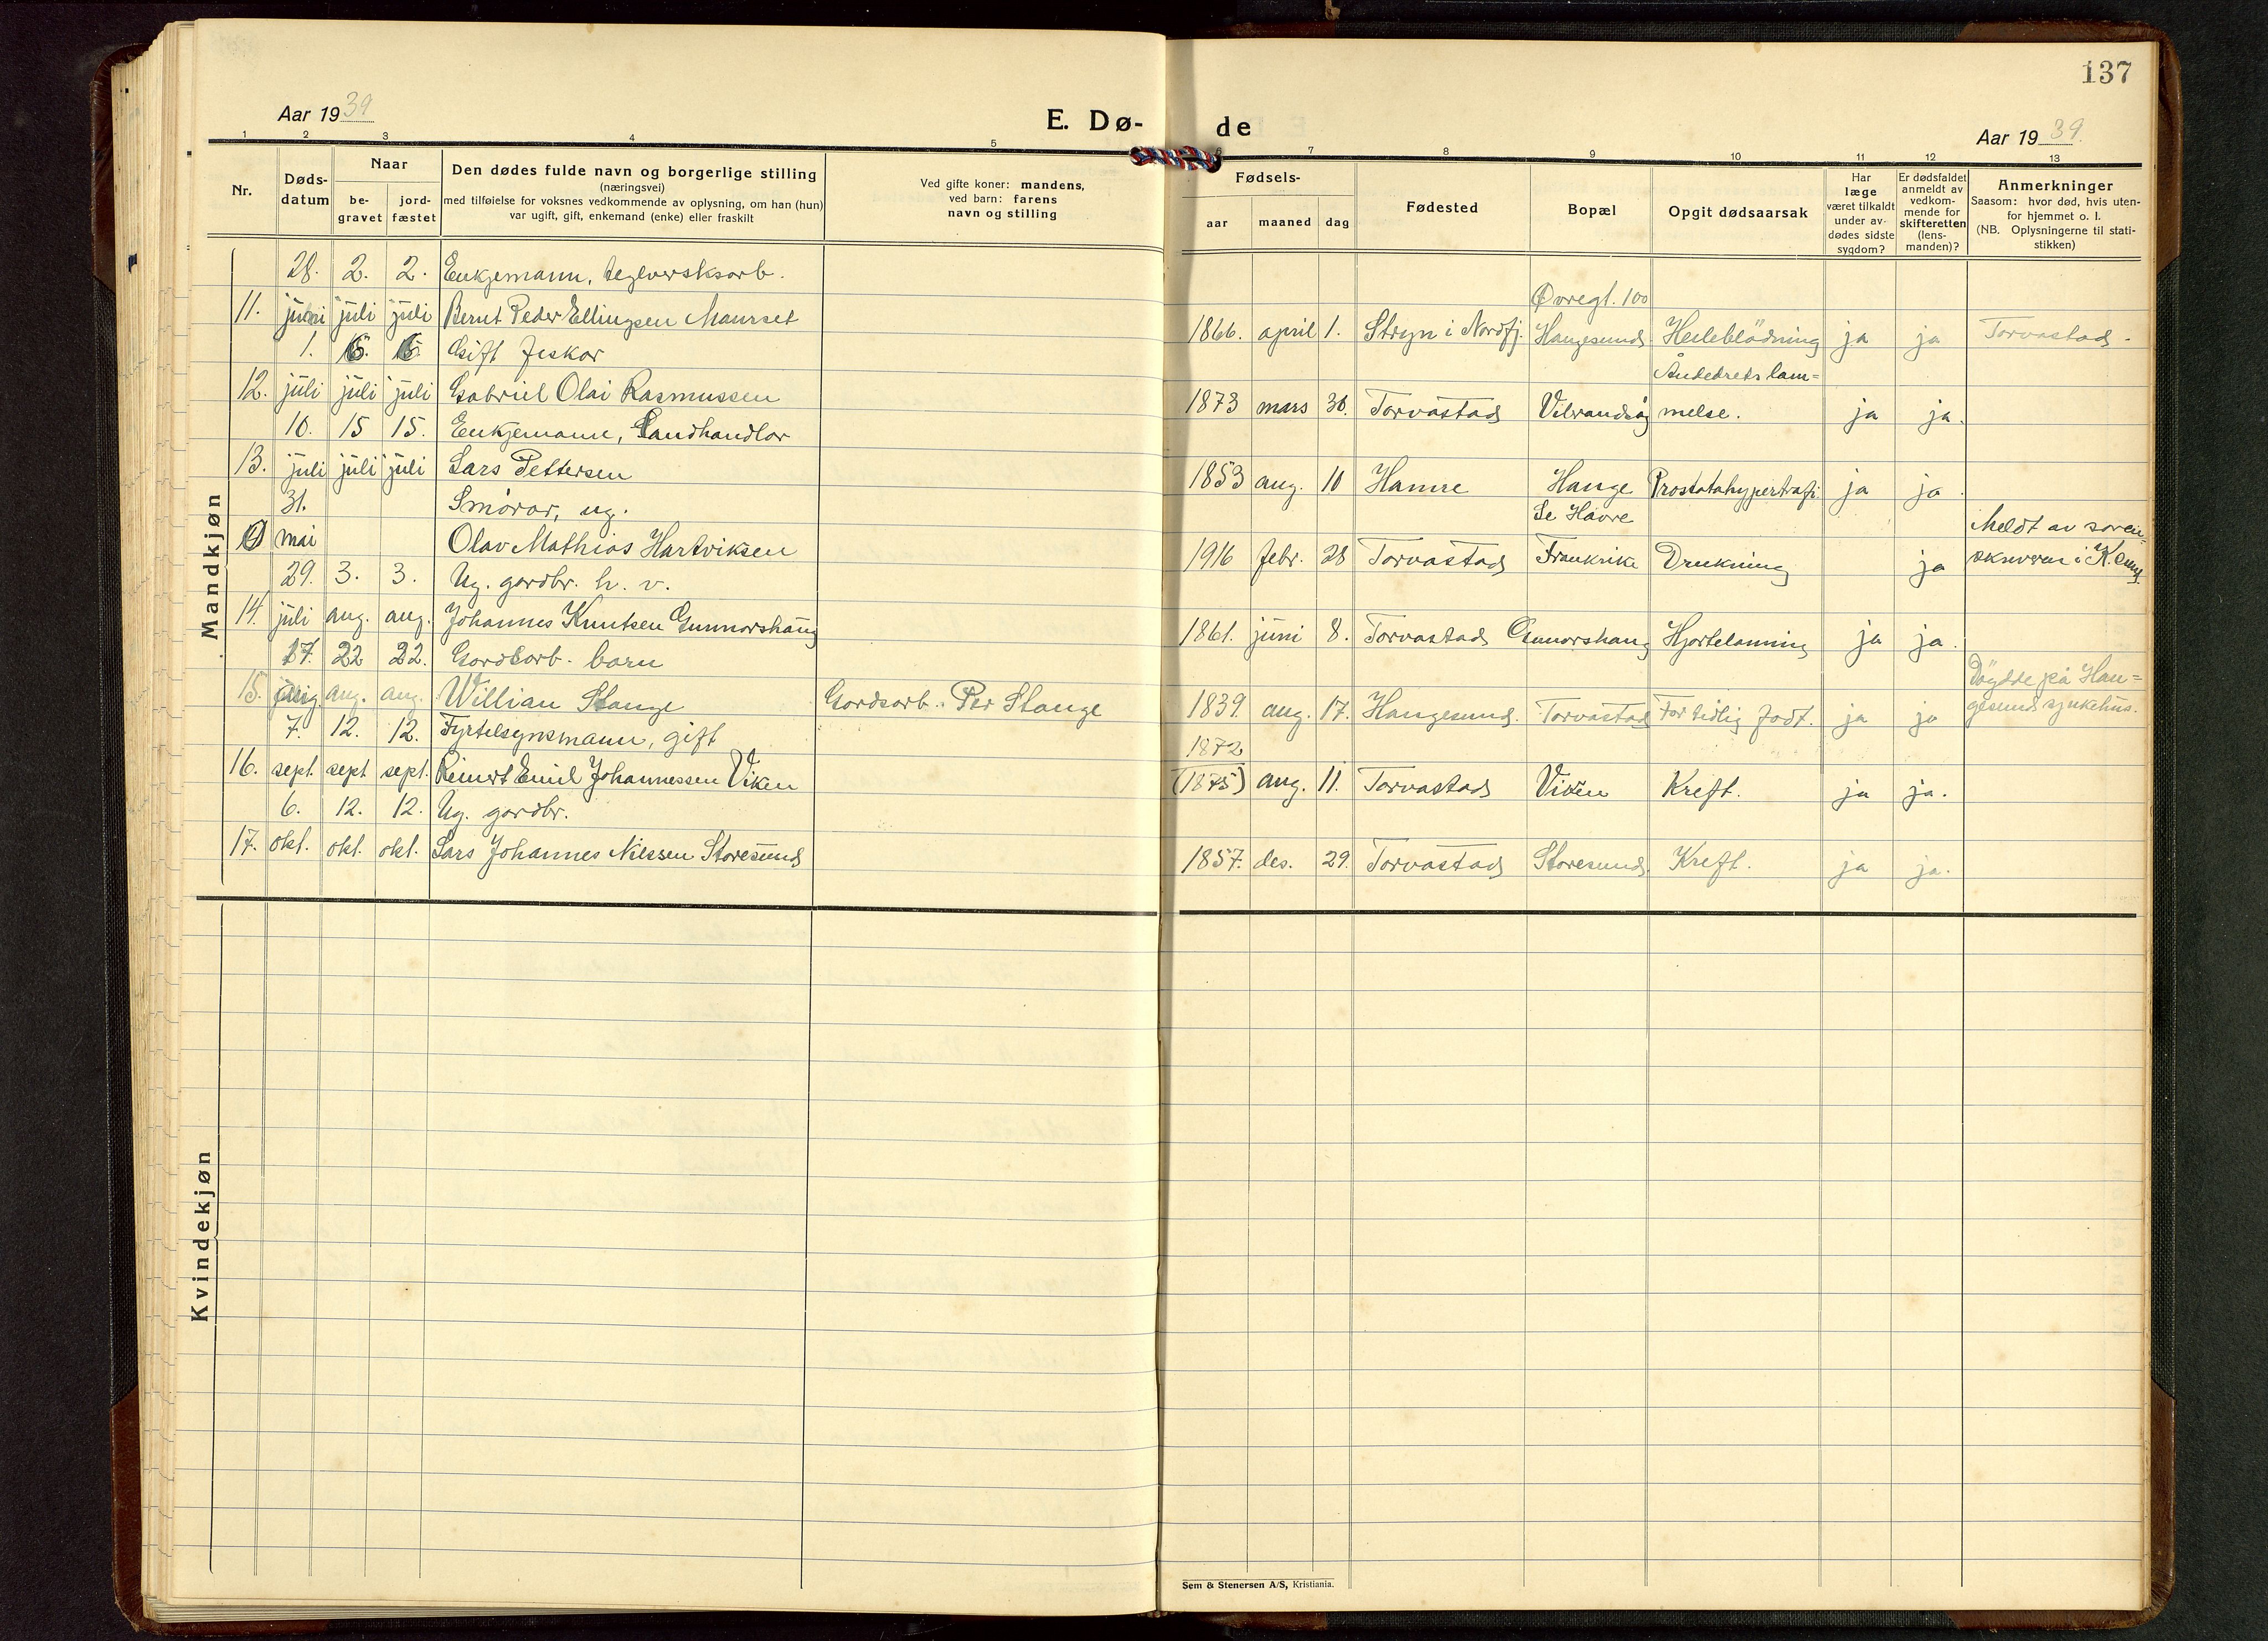 137
Aar 1939
E. Dø-
de
Aar 1939.
1 2 3 4 5 6 7 8 9 10 11 12 13
Nr.
Døds-
datum
Naar
be-
gravet
jord-
fæstet
Den dødes fulde navn og borgerlige stilling
(næringsvei)
med tilføielse for voksnes vedkommende av oplysning, om han (hun)
var ugift, gift, enkemand (enke) eller fraskilt
Ved gifte koner: mandens,
ved barn: farens
navn og stilling
Fødsels-
aar maaned dag
Fødested
Bopæl
Opgit dødsaarsak
Har
læge
været tilkaldt
under av-
dødes sidste
sygdom?
Er dødsfaldet
anmeldt av
vedkom-
mende for
skifteretten
(lens-
manden)?
Anmerkninger
Saasom: hvor død, hvis uten-
for hjemmet o. l.
(NB. Oplysningerne til stati-
stikken)
Mandkjøn
28. 2. 2. Enkjemann, teglverksarb.
11. juni juli juli Bernt Peder Ellingsen Maurset
Øvregt. 100
1866. april 1. Stryn i Nordfj. Haugesund Heileblödning ja ja Torvastad.
1. 6. 6. Gift fiskar
12. juli juli juli Gabriel Olai Rasmussen
Åndedretslam-
1873 mars 30. Torvastad melse. ja ja.
10. 15 15. Enkjemann, Landhandlar
13. juli juli juli Lars Pettersen
1853 aug. 10 Hamre Hauge Prostatahypertrofi ja ja.
31. Smörar, ug.
Le Havre
mai Olav Mathias Hartviksen
1916 febr. 28 Torvastad Frankrike Drukning ja
Meldt av soren-
skrivaren i
29. 3. 3. Ug. gardbr. h. v.
14. juli aug. aug. Johannes Knutsen Gunnarshaug
1861. juni 8. Torvastad Gunnarshaug Hjartelamming ja ja.
17. 22 22. Gardsarb. barn
15. aug. aug. aug. Willian Stange Gardsarb. Per Stange
1839. aug. 17. Haugesund. Torvastad For tidlig födt. ja ja
Döydde på Hau-
gesund sjukehus.
7. 12. 12. Fyrtilsynsmann, gift
16. sept. sept sept. Reinert Emil Johannessen Viken
1872
(1875) aug. 11. Torvastad Viken Kreft. ja ja.
6. 12. 12. Ug. gardbr.
17. okt. okt. okt. Lars Johannes Nilssen Storesund
1857. des. 29. Torvastad Storesund Kreft. ja ja.
Kvindekjøn
Sem & Stenersen A/S, Kristiania.